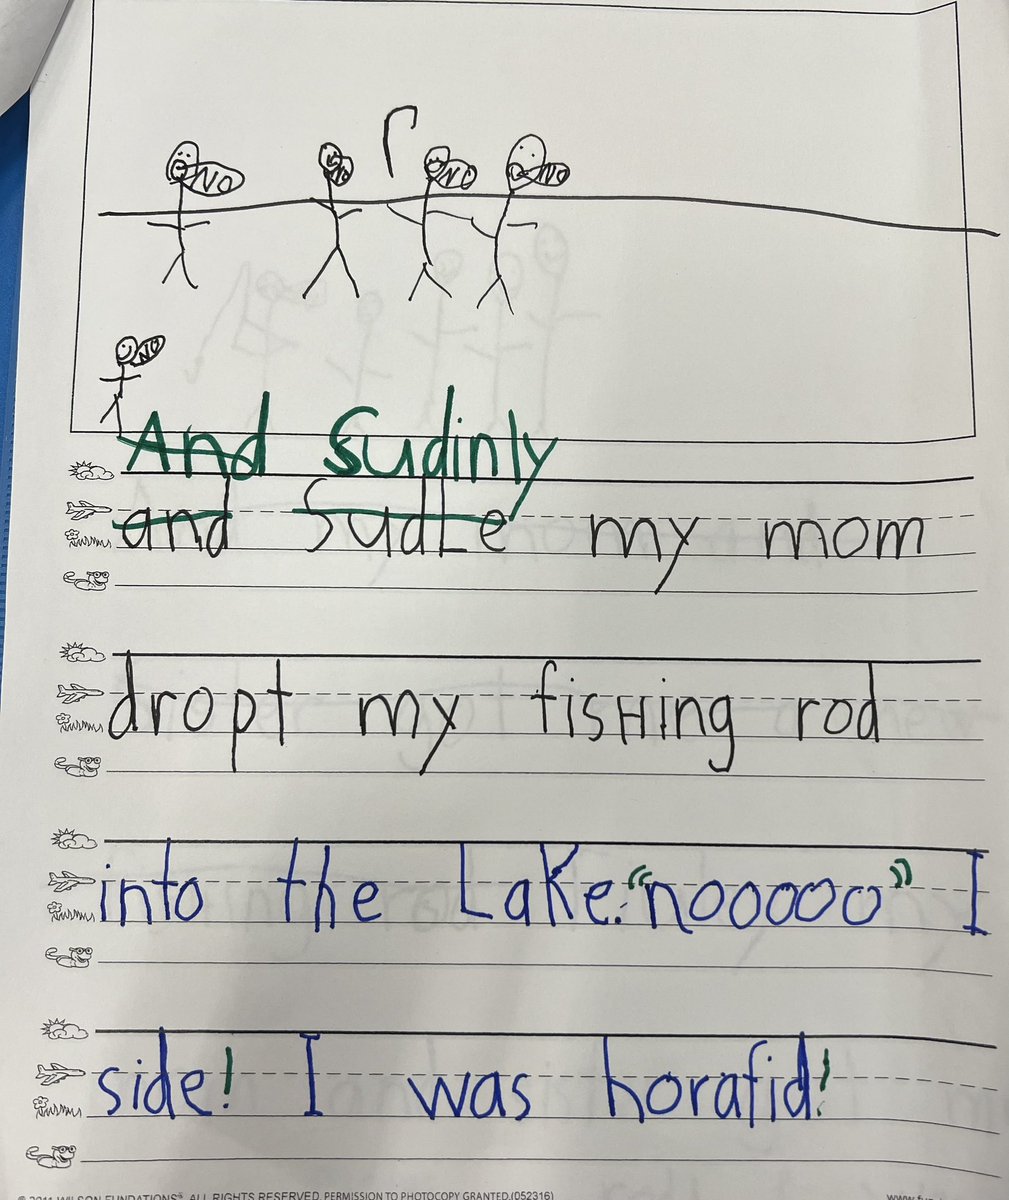 NO NO NO NO
NO
And Sudinly
and SudLe my mom
dropt my fisHing rod
into the LaKe. "nooooo" I
side! I was horafid!
© 2011 WILSON FUNDATIONS® ALL RIGHTS RESERVED. PERMISSION TO PHOTOCOPY GRANTED.(052316)